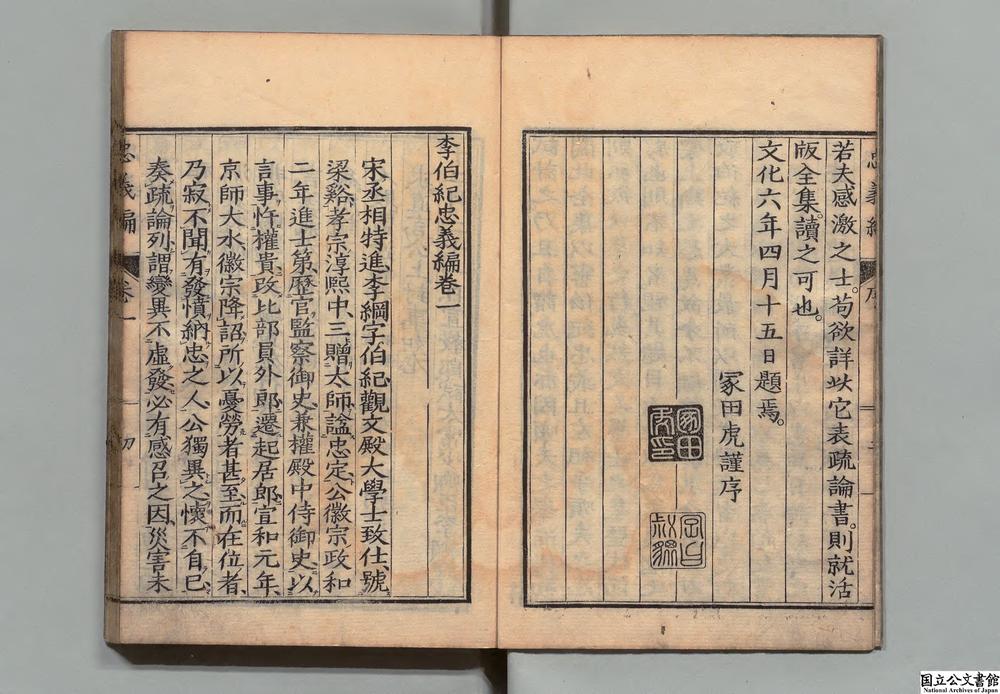 忠義編
序
若夫感激之士。苟欲詳其它表疏論書。則就活
版全集。讀之可也。
文化六年四月十五日題焉。
冢田虎謹序
李伯紀忠義編卷一
宋丞相特進李綱字伯紀、觀文殿大學士致仕、號
梁谿、孝宗淳熙中、三贈太師、謚忠定公、徽宗政和
二年進士第、歷官監察御史、兼權殿中侍御史、以
言事忤權貴、改比部員外郎、遷起居郎、宣和元年、
京師大水、徽宗降詔、所以憂勞者甚至、而在位者、
乃寂不聞、有發憤納忠之人、公獨異之、懷不自已、
奏疏論列、謂變異不虛發、必有感召之因、災害未
忠義編
卷一
初
国立公文書館
National Archives of Japan